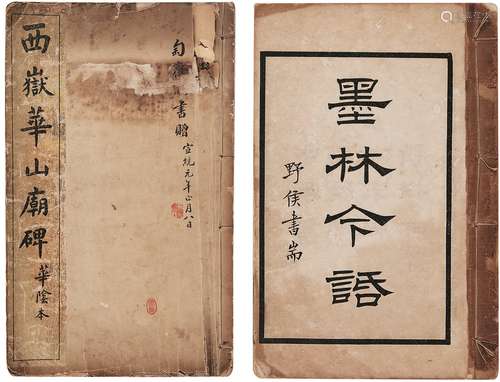 西嶽華山廟碑 華陰本
書贈 宣統元年正月八日
墨林今語
野侯書耑